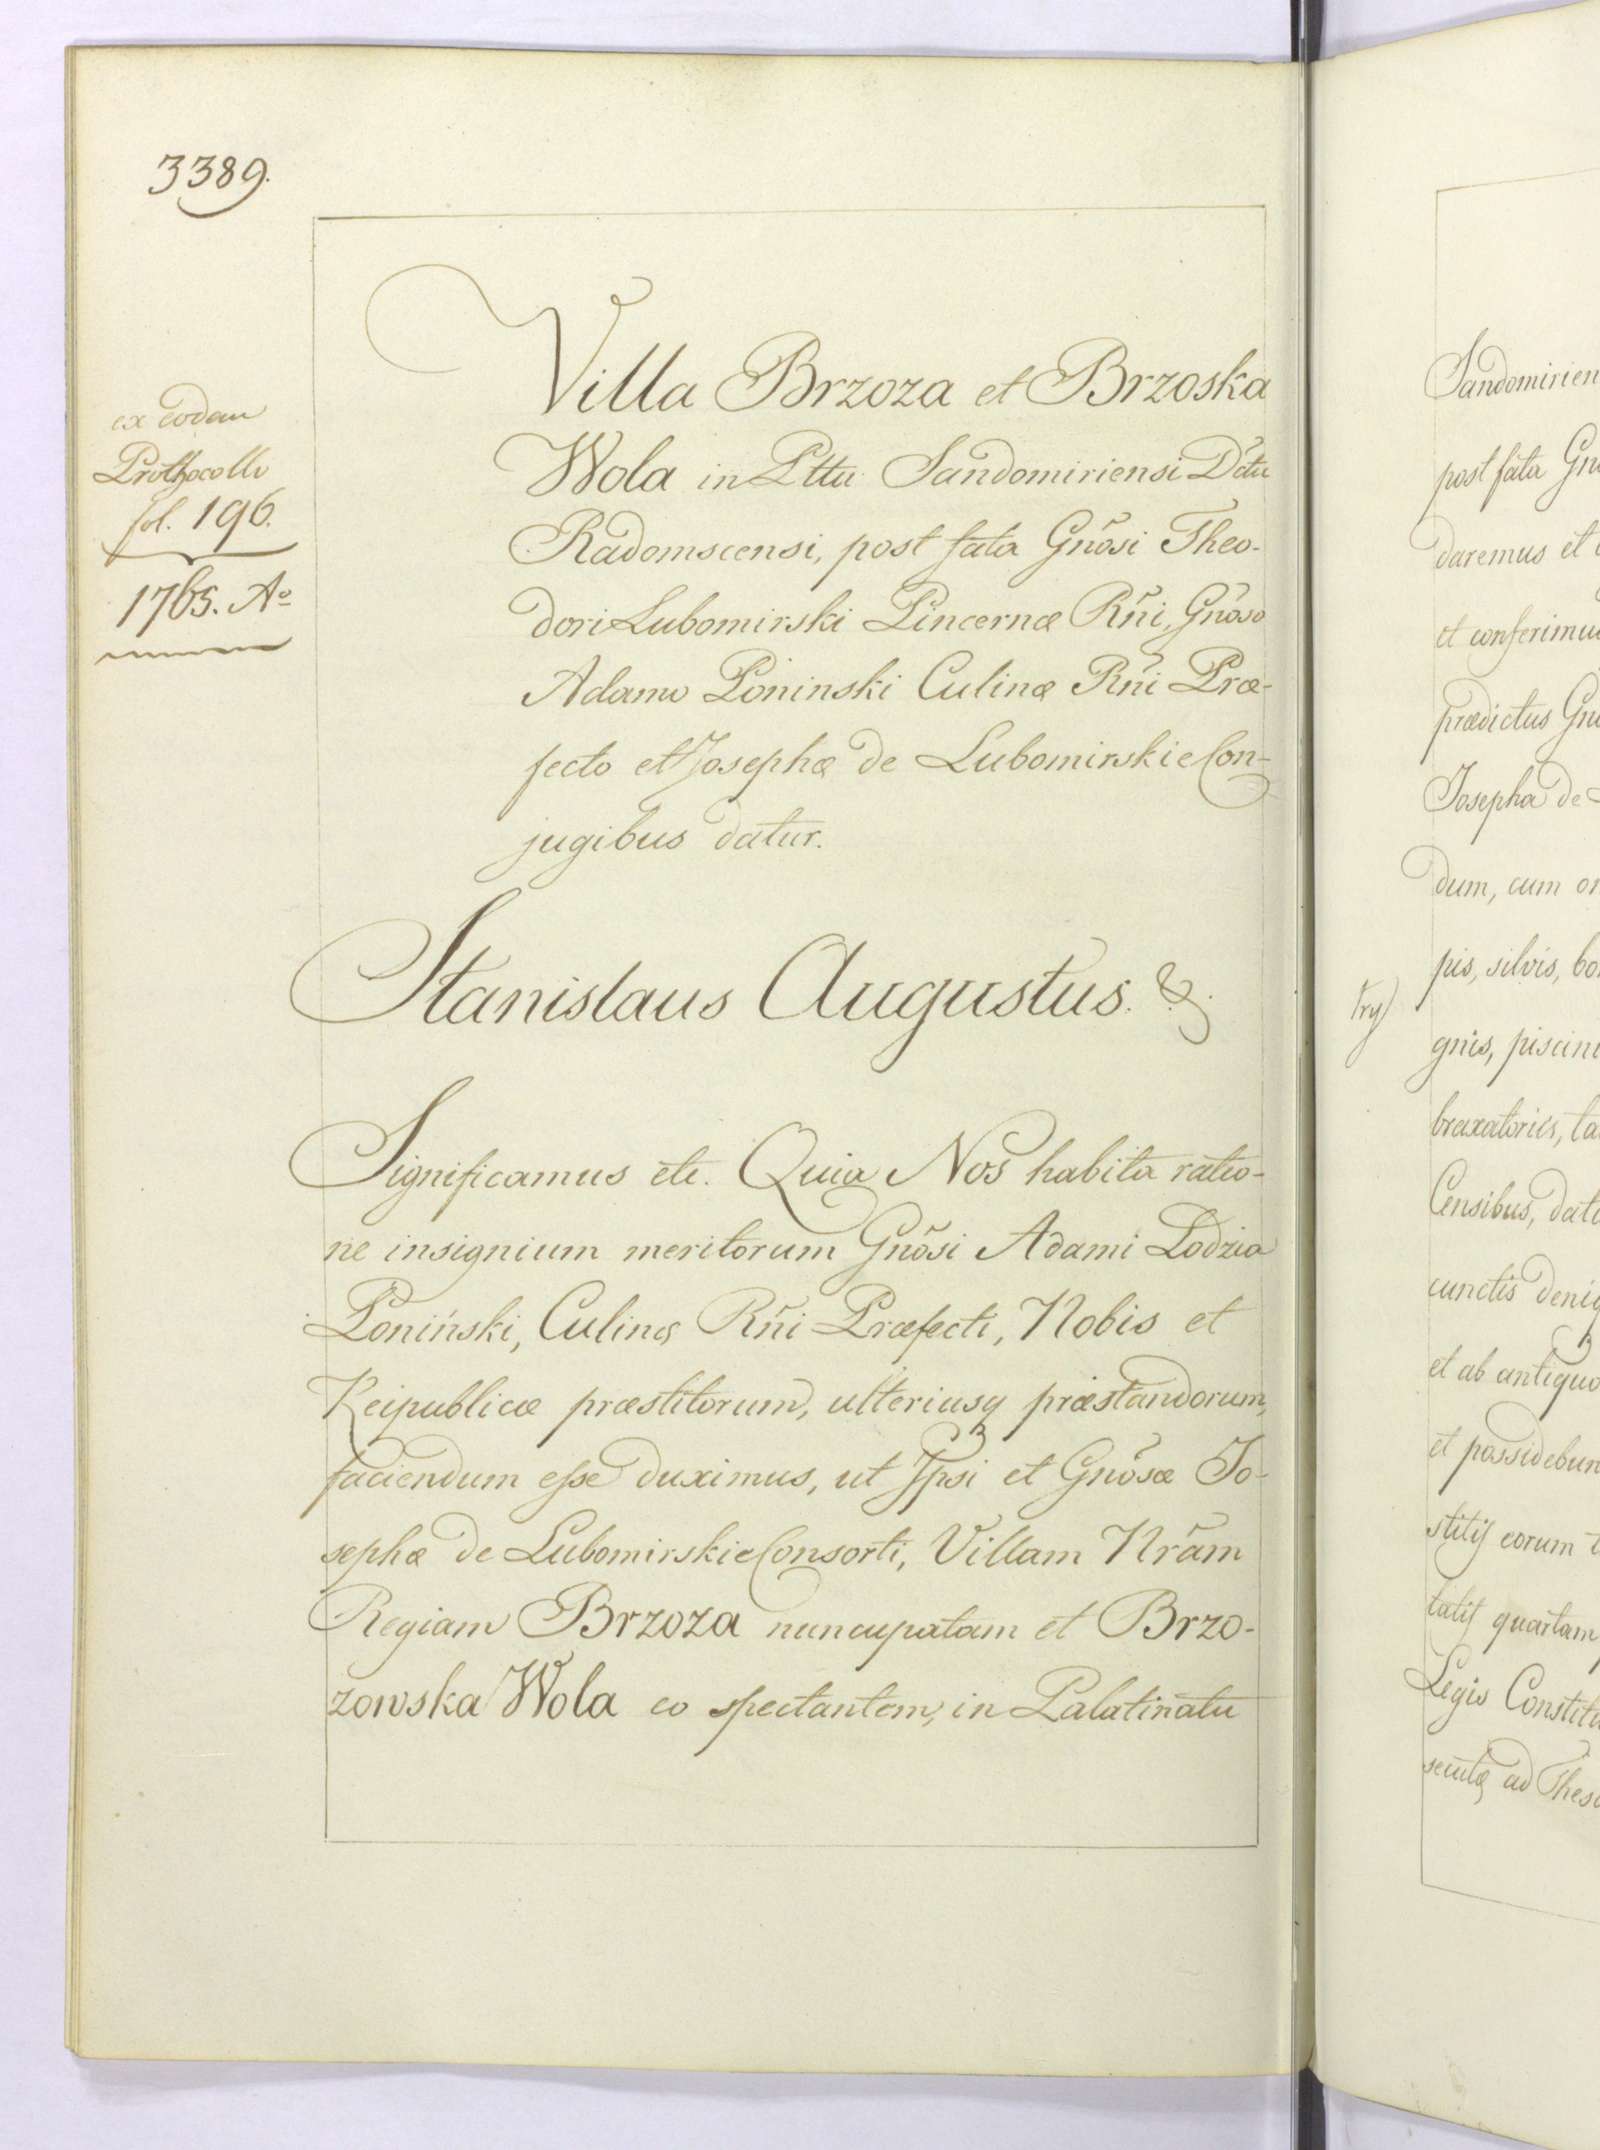 3389.
ex eodem
Prothocollo
fol. 196.
1765. Aº
Villa Brzoza et Brzoska
Wola in Pttu Sandomiriensi Dctu
Radomscensi, post fata Gnõsi Theo-
dori Lubomirski Pincernæ Rñi, Gnõso
Adamo Poninski Culinæ Rñi Præ-
fecto et Josephæ de Lubomirskie Con-
jugibus datur.
Stanislaus Augustus. &.
Significamus etc. Quia Nos habita ratio-
ne insignium meritorum Gnõsi Adami Lodzia
Poniński, Culinę Rñi Præfecti, Nobis et
Reipublicæ præstitorum, ulteriusq præstandorum,
faciendum esse duximus, ut Ipsi et Gnõsæ Jo-
sephæ de Lubomirskie Consorti, Villam Nrãm
Regiam Brzoza nuncupatam et Brzo-
zowska Wola eo spectantem, in Palatinatu
Sandomirien
post fata Gn
daremus et
et conferimus
prædictus Gn
Josepha de
dum, cum
pis, silvis,
gnis,
braxatoriis,
Censibus,
cunctis
et ab antiquo
et possidebun
stitij eorum
tatis quartam
Legis Constitu
secutę ad Thes